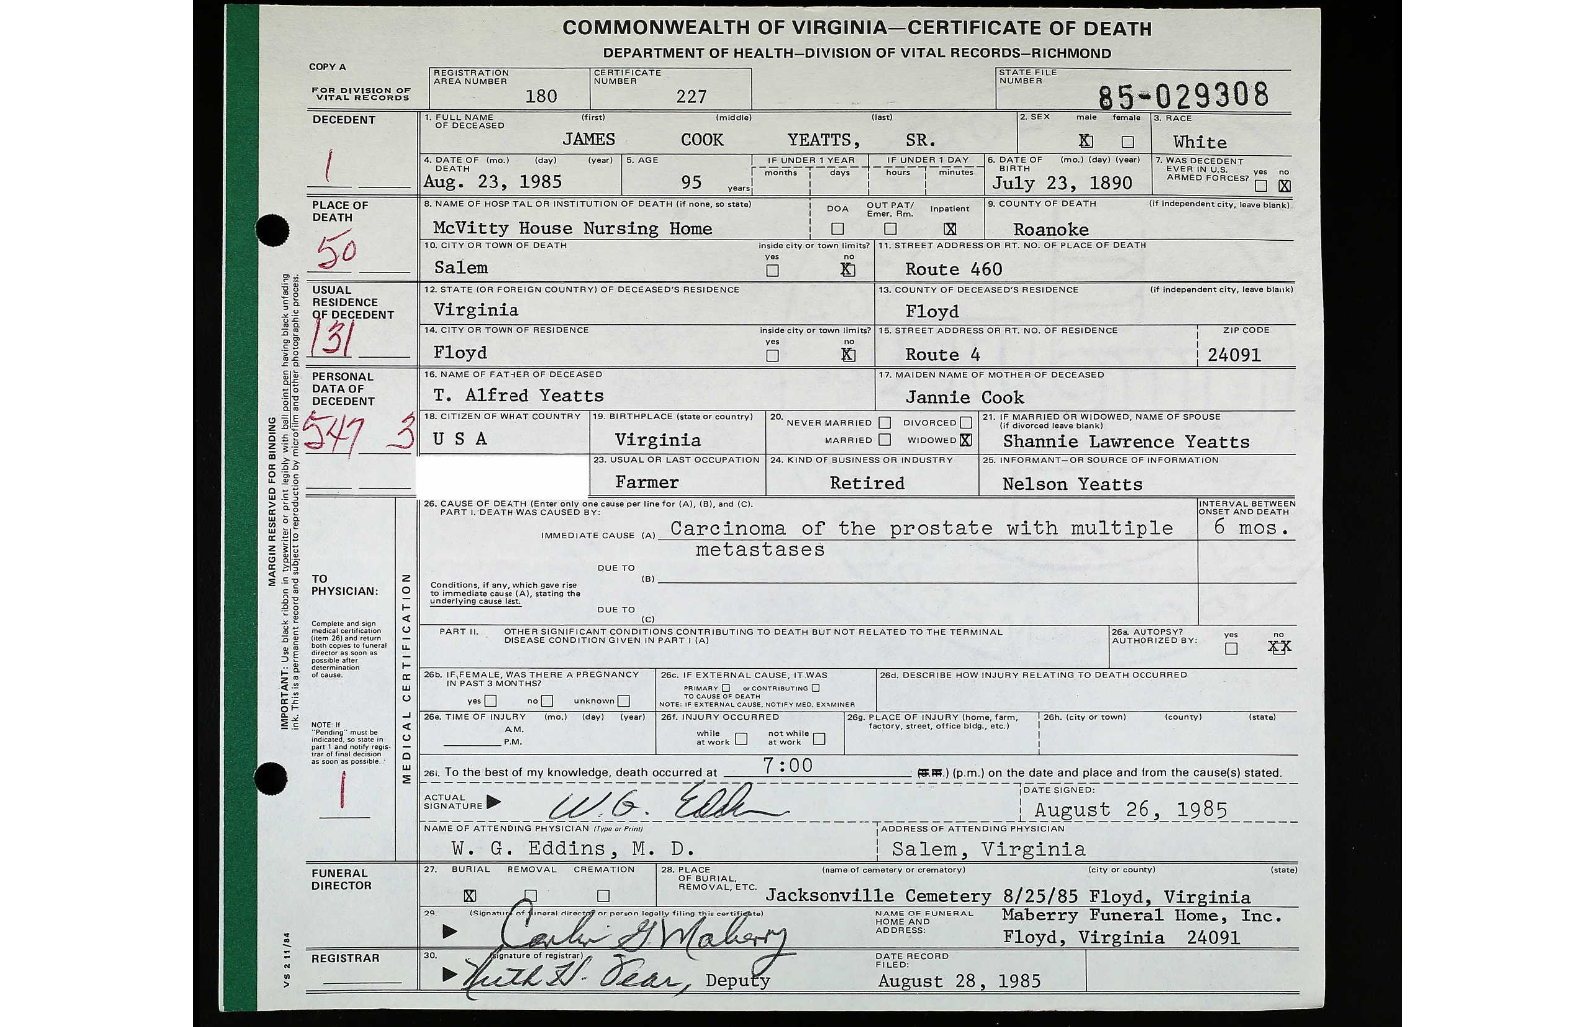 COMMONWEALTH OF VIRGINIA—CERTIFICATE OF DEATH
DEPARTMENT OF HEALTH—DIVISION OF VITAL RECORDS—RICHMOND
COPY A
FOR DIVISION OF VITAL RECORDS
REGISTRATION AREA NUMBER 180
CERTIFICATE NUMBER 227
STATE FILE NUMBER 85-029308
DECEDENT
1
1. FULL NAME OF DECEASED (first) (middle) (last)
JAMES COOK YEATTS, SR.
2. SEX male X female
3. RACE White
4. DATE OF DEATH (mo.) (day) (year) Aug. 23, 1985
5. AGE 95 years
IF UNDER 1 YEAR months days
IF UNDER 1 DAY hours minutes
6. DATE OF BIRTH (mo.) (day) (year) July 23, 1890
7. WAS DECEDENT EVER IN U.S. ARMED FORCES? yes no X
PLACE OF DEATH
50
8. NAME OF HOSP TAL OR INSTITUTION OF DEATH (if none, so state)
McVitty House Nursing Home
DOA OUT PAT/ Emer. Rm. Inpatient X
9. COUNTY OF DEATH (if independent city, leave blank)
Roanoke
10. CITY OR TOWN OF DEATH inside city or town limits? yes no X
Salem
11. STREET ADDRESS OR RT. NO. OF PLACE OF DEATH
Route 460
USUAL RESIDENCE OF DECEDENT
131
12. STATE (OR FOREIGN COUNTRY) OF DECEASED'S RESIDENCE
Virginia
13. COUNTY OF DECEASED'S RESIDENCE (if independent city, leave blank)
Floyd
14. CITY OR TOWN OF RESIDENCE inside city or town limits? yes no X
Floyd
15. STREET ADDRESS OR RT. NO. OF RESIDENCE ZIP CODE
Route 4 24091
PERSONAL DATA OF DECEDENT
547 3
16. NAME OF FATHER OF DECEASED
T. Alfred Yeatts
17. MAIDEN NAME OF MOTHER OF DECEASED
Jannie Cook
18. CITIZEN OF WHAT COUNTRY
U S A
19. BIRTHPLACE (state or country)
Virginia
20. NEVER MARRIED DIVORCED
MARRIED WIDOWED X
21. IF MARRIED OR WIDOWED, NAME OF SPOUSE (if divorced leave blank)
Shannie Lawrence Yeatts
23. USUAL OR LAST OCCUPATION
Farmer
24. KIND OF BUSINESS OR INDUSTRY
Retired
25. INFORMANT—OR SOURCE OF INFORMATION
Nelson Yeatts
MARGIN RESERVED FOR BINDING
IMPORTANT: Use black ribbon in typewriter or print legibly with ball point pen having black unfading
ink. This is a permanent record and subject to reproduction by microfilm and other photographic process.
TO PHYSICIAN:
Complete and sign medical certification (item 26) and return both copies to funeral director as soon as possible after determination of cause.
NOTE: If "Pending" must be indicated, so state in part 1 and notify registrar of final decision as soon as possible.
1
MEDICAL CERTIFICATION
26. CAUSE OF DEATH (Enter only one cause per line for (A), (B), and (C).
PART I. DEATH WAS CAUSED BY:
INTERVAL BETWEEN ONSET AND DEATH
IMMEDIATE CAUSE (A) Carcinoma of the prostate with multiple 6 mos.
metastases
DUE TO
(B)
Conditions, if any, which gave rise to immediate cause (A), stating the underlying cause last.
DUE TO
(C)
PART II. OTHER SIGNIFICANT CONDITIONS CONTRIBUTING TO DEATH BUT NOT RELATED TO THE TERMINAL DISEASE CONDITION GIVEN IN PART I (A)
26a. AUTOPSY? AUTHORIZED BY: yes no XX
26b. IF, FEMALE, WAS THERE A PREGNANCY IN PAST 3 MONTHS?
yes no unknown
26c. IF EXTERNAL CAUSE, IT WAS
PRIMARY or CONTRIBUTING
TO CAUSE OF DEATH
NOTE: IF EXTERNAL CAUSE, NOTIFY MED. EXAMINER
26d. DESCRIBE HOW INJURY RELATING TO DEATH OCCURRED
26e. TIME OF INJURY (mo.) (day) (year)
A.M.
P.M.
26f. INJURY OCCURRED
while at work not while at work
26g. PLACE OF INJURY (home, farm, factory, street, office bldg., etc.)
26h. (city or town) (county) (state)
26i. To the best of my knowledge, death occurred at 7:00 (p.m.) on the date and place and from the cause(s) stated.
ACTUAL SIGNATURE W. G. Eddins
DATE SIGNED: August 26, 1985
NAME OF ATTENDING PHYSICIAN (Type or Print)
W. G. Eddins, M. D.
ADDRESS OF ATTENDING PHYSICIAN
Salem, Virginia
FUNERAL DIRECTOR
27. BURIAL REMOVAL CREMATION
X
28. PLACE OF BURIAL, REMOVAL, ETC. (name of cemetery or crematory) (city or county) (state)
Jacksonville Cemetery 8/25/85 Floyd, Virginia
29. (Signature of funeral director or person legally filing this certificate)
G Maberry
NAME OF FUNERAL HOME AND ADDRESS:
Maberry Funeral Home, Inc.
Floyd, Virginia 24091
REGISTRAR
30. (signature of registrar)
Ruth H. Dear, Deputy
DATE RECORD FILED:
August 28, 1985
VS 2 11/84